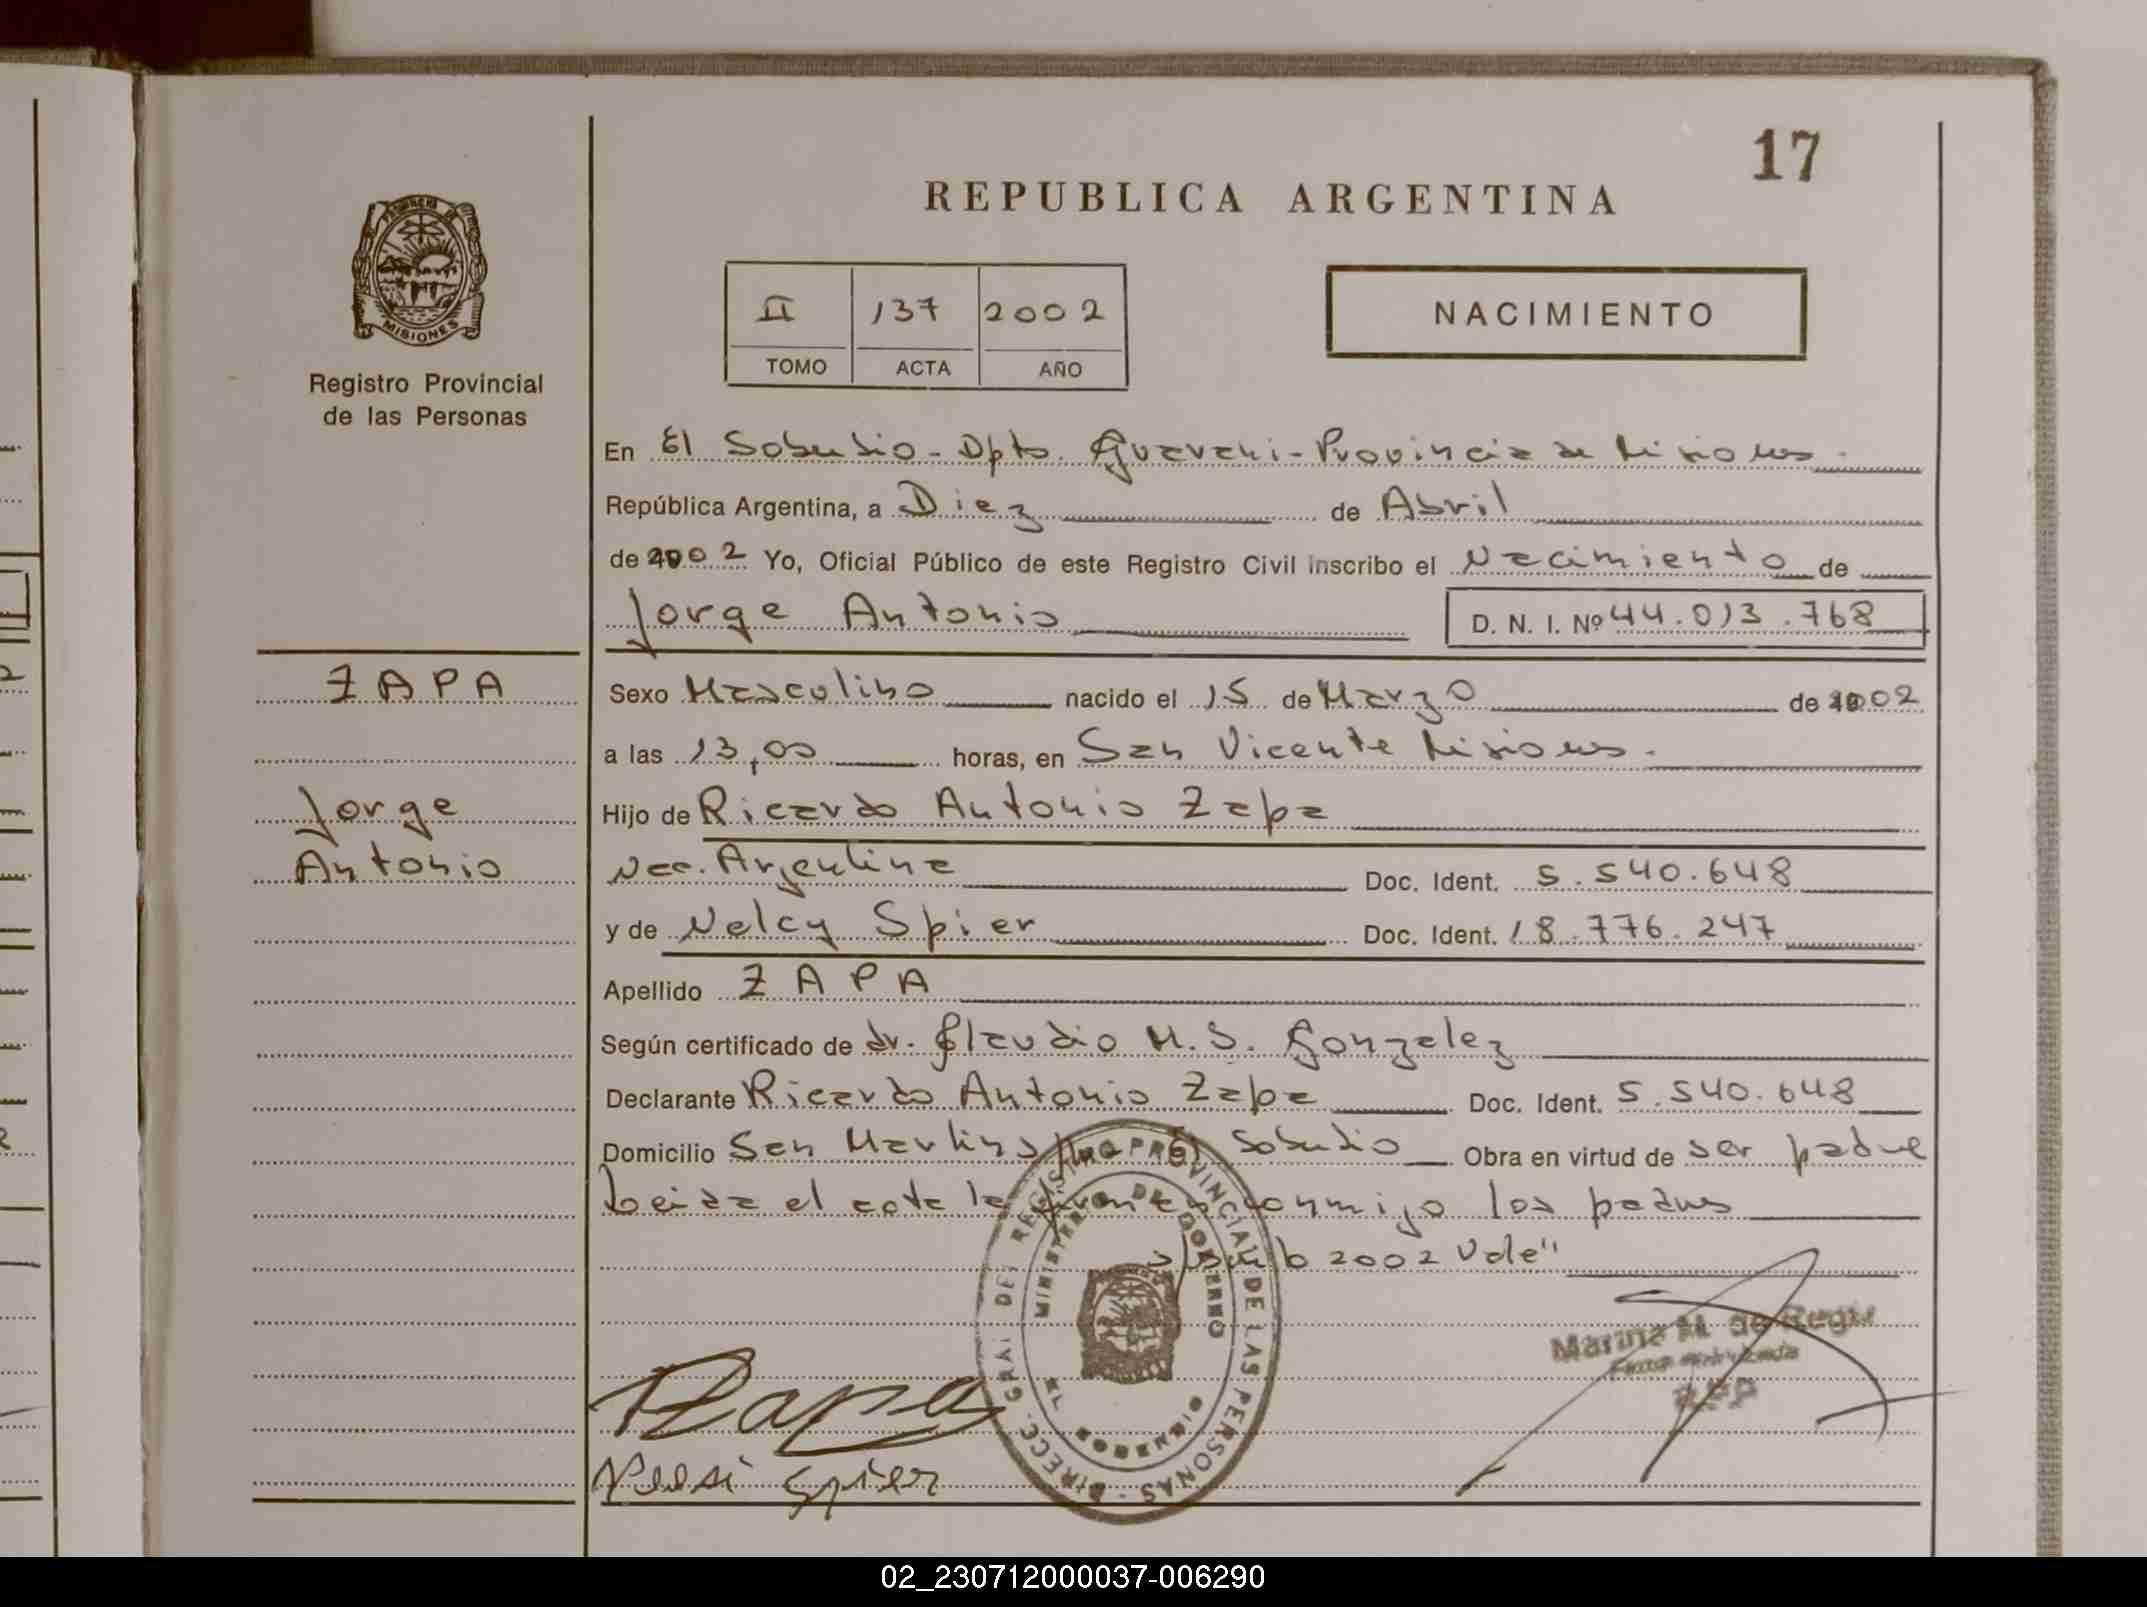 17
REPUBLICA ARGENTINA
PROVINCIA DE
MISIONES
Registro Provincial
de las Personas
II 137 2002
TOMO ACTA AÑO
NACIMIENTO
En El Soberbio - Dpto. Guarani - Provincia de Misiones
República Argentina, a Diez de Abril
de 2002 Yo, Oficial Público de este Registro Civil inscribo el Nacimiento de
Jorge Antonio D. N. I. Nº 44.013.768
ZAPA
Jorge
Antonio
Sexo Masculino nacido el 15 de Marzo de 2002
a las 13,00 horas, en San Vicente Misiones.
Hijo de Ricardo Antonio Zapa
Nac. Argentina Doc. Ident. 5.540.648
y de Nelcy Spier Doc. Ident. 18.776.247
Apellido ZAPA
Según certificado de dr. Claudio M. S. Gonzalez
Declarante Ricardo Antonio Zapa Doc. Ident. 5.540.648
Domicilio San Martin s/n El Soberbio Obra en virtud de ser padre
Leida el acta la firman conmigo los padres
2002 Vale"
DIRECC. GRAL DEL REGISTRO PROVINCIAL DE LAS PERSONAS
MINISTERIO DE GOBIERNO
EL SOBERBIO
Marina M. de
RPP
Zapa
Nelsi Spier
02_230712000037-006290